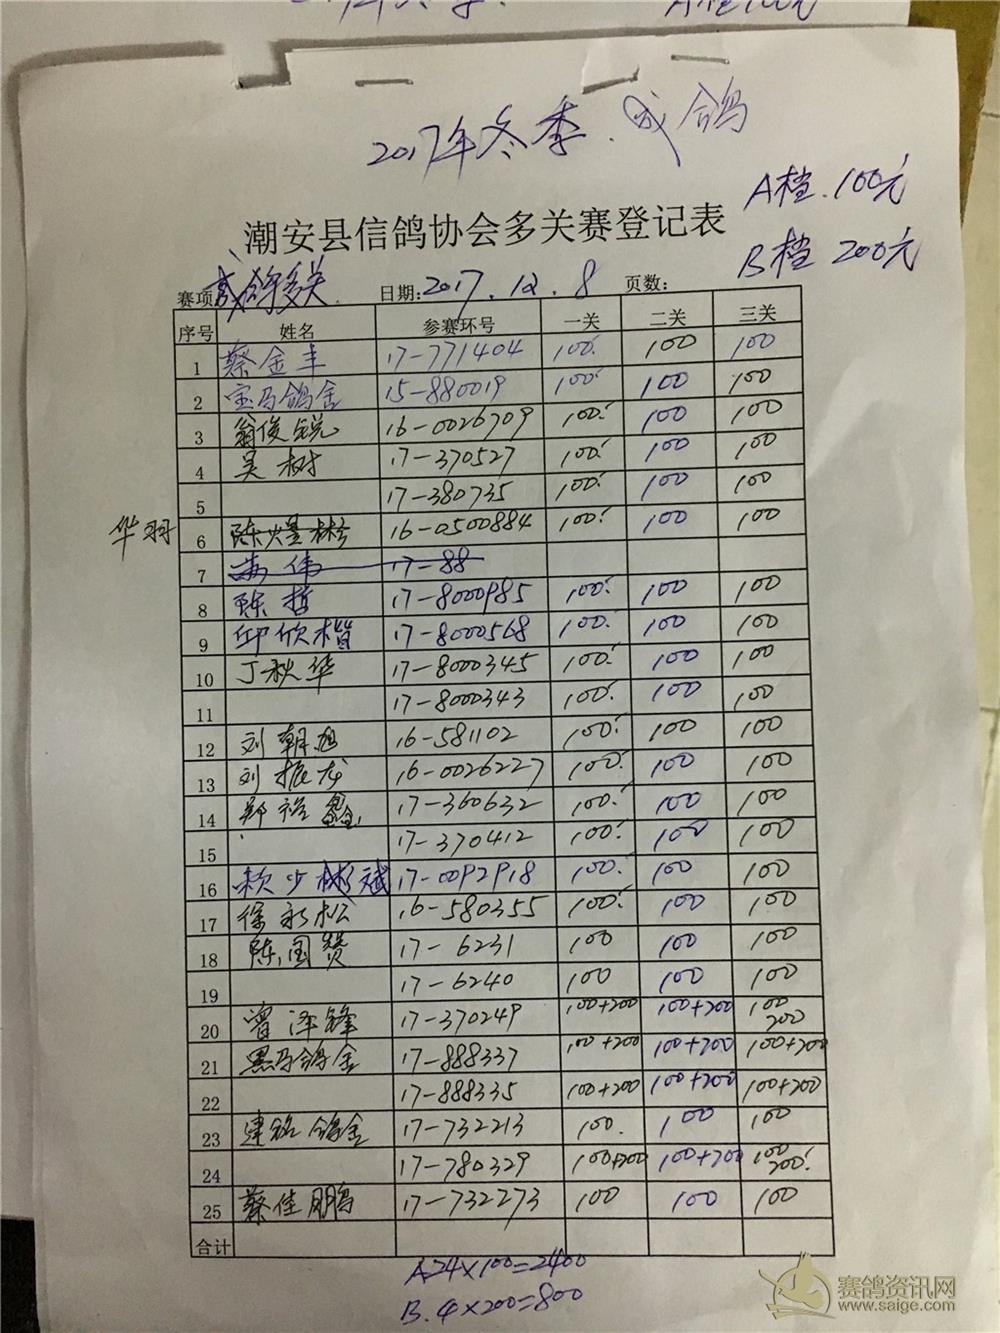 2017年冬季.成鸽
A档.100元
潮安县信鸽协会多关赛登记表
B档 200元
赛项 成鸽多关. 日期:2017.12.8 页数:
序号 姓名 参赛环号 一关 二关 三关
1 蔡金丰 17-771404 100. 100 100
2 宝马鸽舍 15-880019 100. 100 100
3 翁俊锐 16-0026709 100. 100 100
4 吴树 17-370527 100. 100 100
5 17-380735 100. 100 100
华羽 6 陈煌彬 16-0500884 100. 100 100
7 伟 17-88
8 陈哲 17-8000985 100. 100 100
9 邱欣楷 17-8000568 100. 100 100
10 丁秋华 17-8000345 100. 100 100
11 17-8000343 100. 100 100
12 刘朝旭 16-581102 100. 100 100
13 刘振龙 16-0026227 100. 100 100
14 郑裕鑫 17-360632 100. 100 100
15 17-370412 100. 100 100
16 赖少斌 17-0092918 100. 100 100
17 徐永松 16-580355 100. 100 100
18 陈国赞 17-6231 100 100 100
19 17-6240 100 100 100
20 曾泽锋 17-370249 100+200 100+200 100 200
21 黑马鸽舍 17-888337 100+200 100+200 100+200
22 17-888335 100+200 100+200 100+200
23 建铭鸽舍 17-732213 100. 100 100
24 17-780329 100+200 100+200 100 200.
25 蔡佳鹏 17-732273 100 100 100
合计
A.24×100=2400
B.4×200=800
赛鸽资讯网
www.saige.com